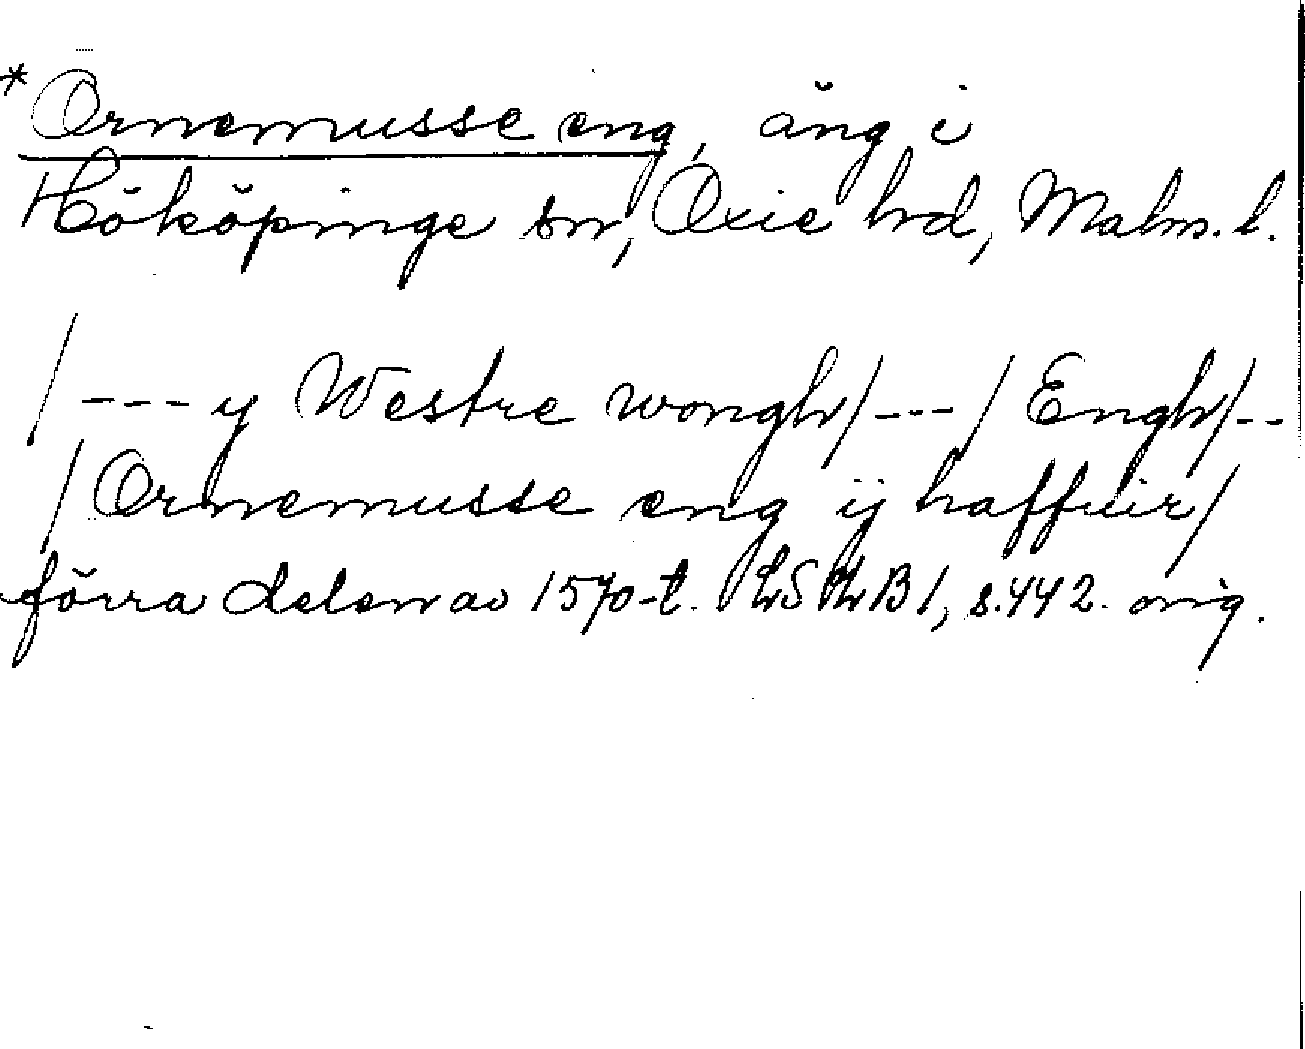 *Ornemusse eng, äng i
Hököpinge sn, Oxie hd, Malm. l.
/--- y Westre wongh/---/Engh/--
/Ornemusse eng ÿ haffuir/
förra delen av 1570-t. LSLB1, s.442. orig.